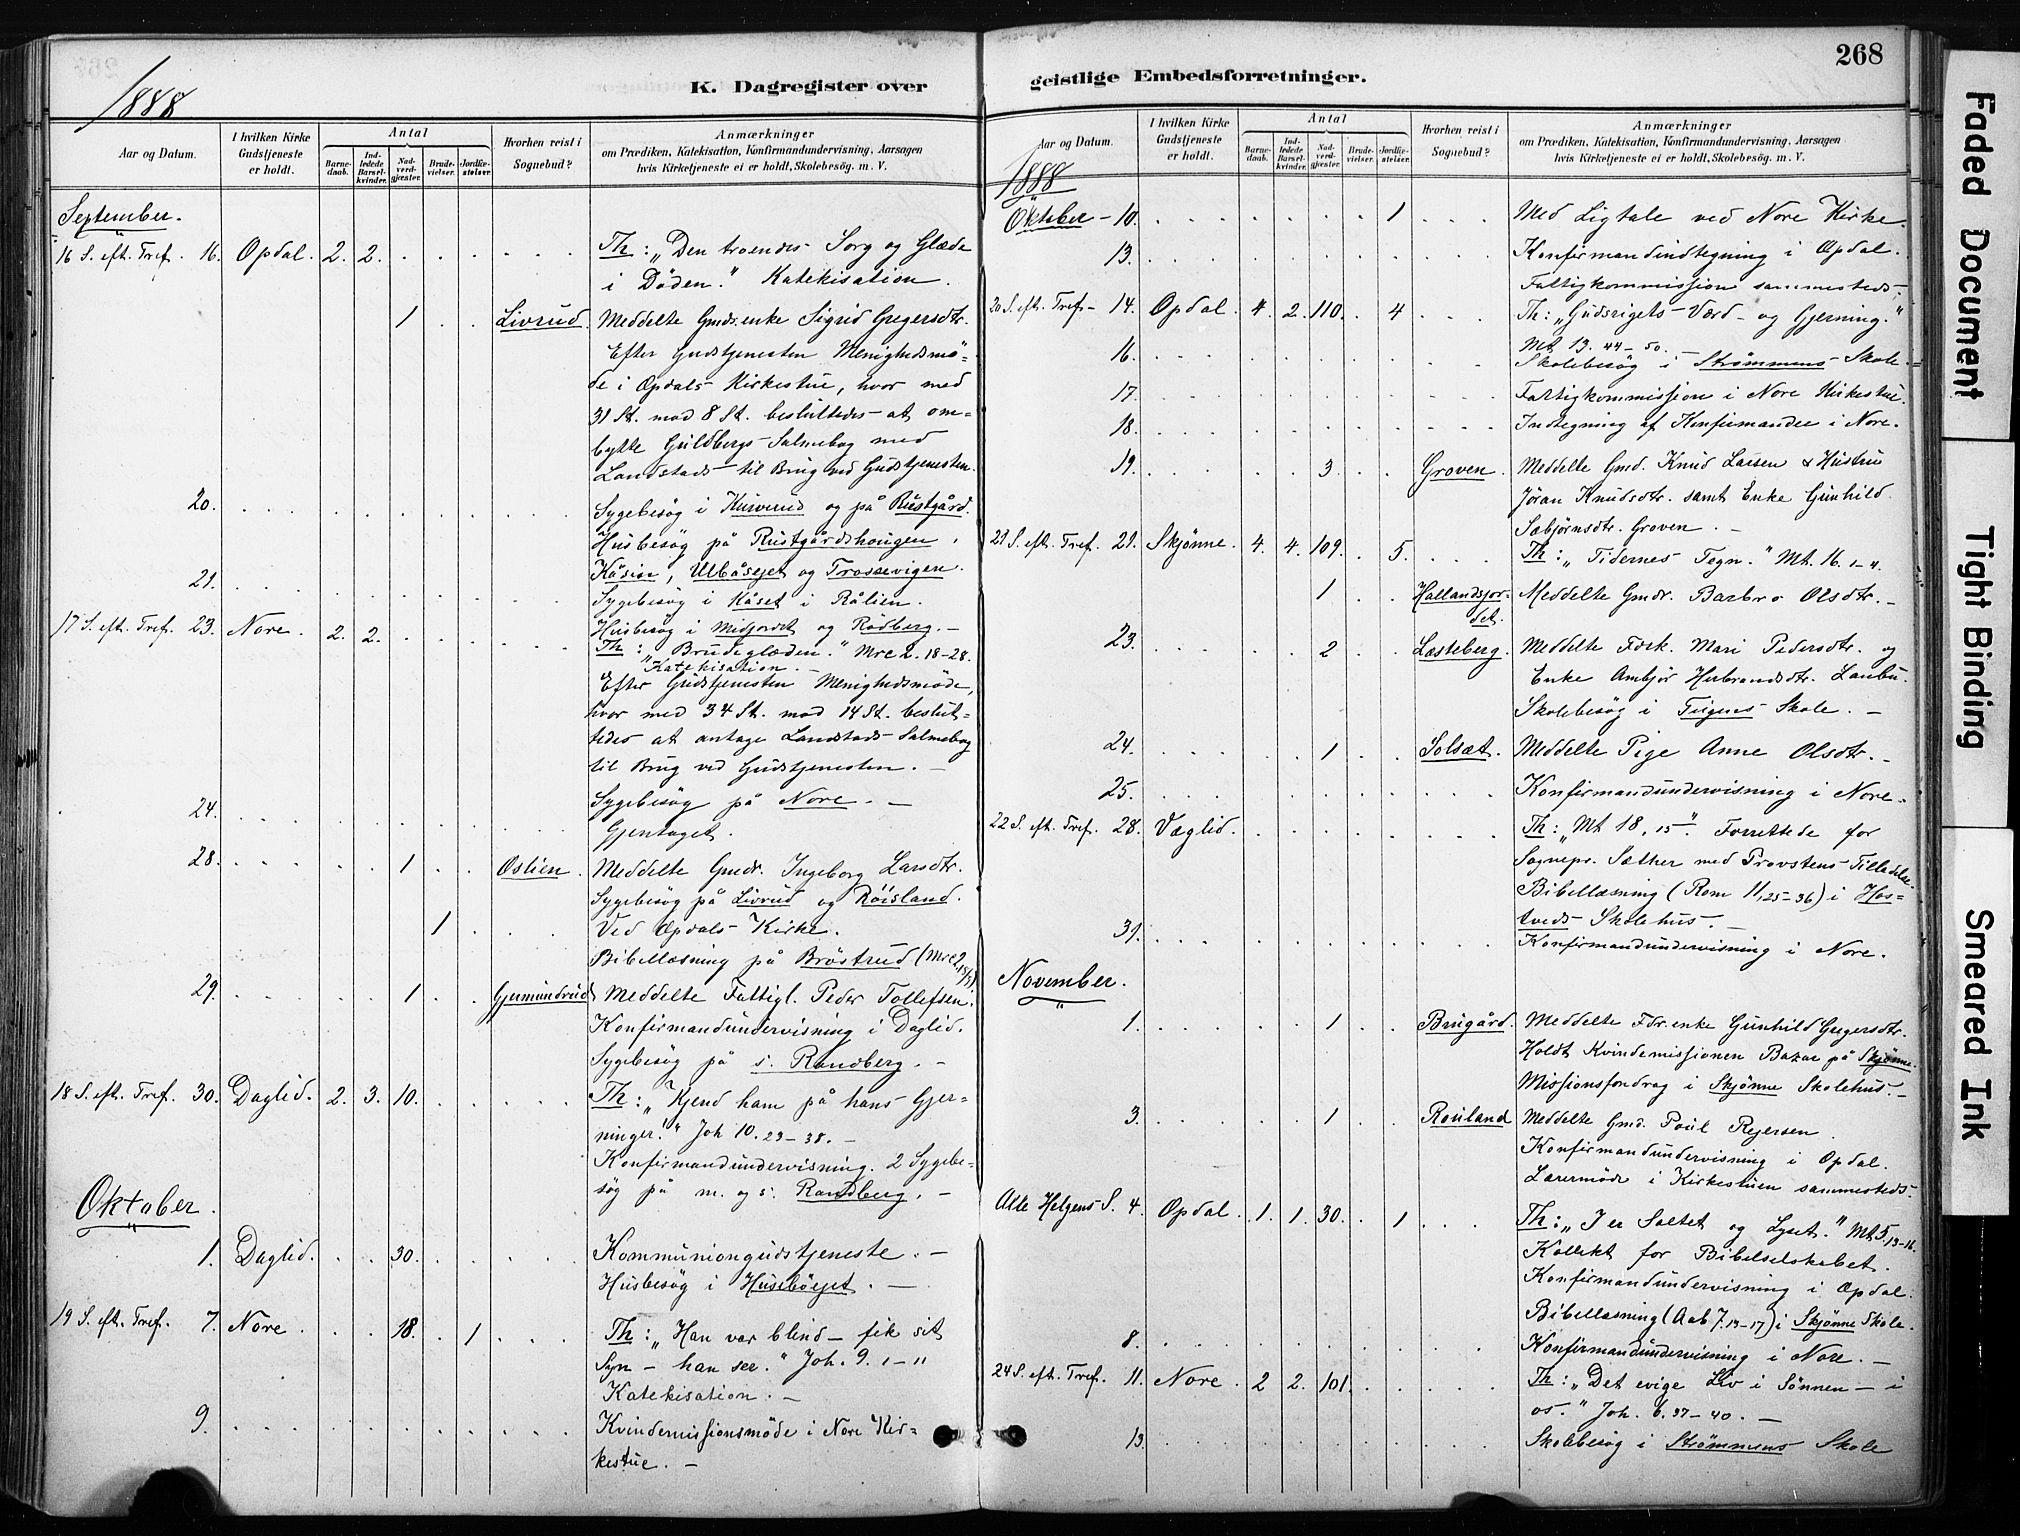 K. Dagregister over
1888
Aar og Datum.
I hvilken Kirke Gudstjeneste er holdt.
Antal
Barne-daab.
Ind-ledede Barsel-kvinder.
Nad-verd-gjæster.
Brude-vielser.
Jordfæ-stelser.
Hvorhen reist i Sognebud?
Anmærkninger
om Prædiken, Katekisation, Konfirmandundervisning, Aarsagen
hvis Kirketjeneste ei er holdt, Skolebesøg. m. V.
September.
16 S. eft. Tref. 16. Opdal. 2. 2. Th: „Den troendes Sorg og Glæde
i Döden." Katekisation.
1 Livrud. Meddelte Gmds.enke Sigrid Gregersdtr.
Efter Gudstjenesten Menighedsmö-
de i Opdals Kirkestue, hvor med
31 St. mod 8 St. besluttedes at om-
bytte Guldbergs Salmebog med
Landstads til Brug ved Gudstjenesten.
20. Sygebesög i Kurverud og på Rustgård.
Husbesög på Rustgårdshougen,
Kåsin, Ulbåsejet og Trossevigen.
21. Sygebesög i Kåset i Rålien.
Husbesög i Midjordet og Rödberg. –
17 S. eft. Tref. 23. Nore. 2. 2. Th: „Brudeglæden." Mrc 2. 18–28.
Katekisation. –
Efter Gudstjenesten Menighedsmöde,
hvor med 34 St. mod 14 St. beslut-
tedes at antage Landstads Salmebog
til Brug ved Gudstjenesten. –
Sygebesög på Nore. –
24. Gjentaget.
28. 1 Oslien. Meddelte Gmdr. Ingeborg Larsdtr.
Sygebesög på Livrud og Röisland.
1 Ved Opdals Kirke.
Bibellæsning på Bröstrud (Mrc 2
29. 1 Gjermundrud Meddelte Fattigl. Peder Tollefsen.
Konfirmandundervisning i Daglid.
Sygebesög på s. Randberg. –
18 S. eft. Tref. 30. Daglid. 2. 3. 10. Th: „Kjend ham på hans Gjer-
ninger!" Joh 10. 23–38. –
Konfirmandundervisning. 2 Sygebe-
sög på m. og s. Randberg. –
Oktober.
1. Daglid. 30. Kommuniongudstjeneste. –
Husbesög i Huseböejet. –
19 S. eft. Tref. 7. Nore. 18. 1 Th: „Han var blind – fik sit
Syn – han ser." Joh. 9. 1–11
Katekisation. –
9. Kvindemissionsmöde i Nore Kir-
kestue. –
268
geistlige Embedsforretninger.
Aar og Datum.
I hvilken Kirke Gudstjeneste er holdt.
Antal
Barne-daab.
Ind-ledede Barsel-kvinder.
Nad-verd-gjæster.
Brude-vielser.
Jordfæ-stelser.
Hvorhen reist i Sognebud?
Anmærkninger
om Prædiken, Katekisation, Konfirmandundervisning, Aarsagen
hvis Kirketjeneste ei er holdt, Skolebesøg. m. V.
1888
Oktober – 10. 1 Med Ligtale ved Nore Kirke.
13. Konfirmandindtegning i Opdal.
Fattigkommission sammesteds.
20 S. eft. Tref – 14. Opdal. 4. 2. 110. 4 Th: „Gudsrigets Værd og Gjerning."
Mt 13. 44–50.
16. Skolebesög i Strömmens Skole.
17. Fattigkommission i Nore Kirkestue.
18. Indtegning af Konfirmander i Nore.
19. 3. Groven. Meddelte Gmd. Knud Larsen & Hustru
Jöran Knudsdtr. samt Enke Gunhild
Sæbjörnsdtr. Groven. –
21 S. eft. Tref. 21. Skjönne. 4. 4. 109. 5. Th: „Tidernes Tegn." Mt. 16. 1–4.
1 Hallandsjor-det. Meddelte Gmdr. Barbro Olsdtr. –
23. 2 Læsteberg. Meddelte Forh. Mari Pedersdtr. og
Enke Ambjör Herbrandsdtr. Laubu.
Skolebesög i Teigens Skole. –
24. 1 Solsæt. Meddelte Pige Anne Olsdtr. –
25. Konfirmandundervisning i Nore.
22 S. eft. Tref. 28. Væglid. Th: „Mt 18, 15". Forrettede for
Sognepr. Sæther med Provstens Tilladelse.
Bibellæsning (Rom 11, 25–36) i Hos-
tveds Skolehus.
31. Konfirmandundervisning i Nore.
November.
1. 1 Brugård. Meddelte Fdr.enke Gunhild Gregersdtr.
Holdt Kvindemissionen Bazar på Skjönne.
Missionsforedrag i Skjönne Skolehus. –
3. 1 Rouland Meddelte Gmd. Poul Rejersen.
Konfirmandundervisning i Opdal.
Lærermöde i Kirkestuen sammesteds.
Alle Helgens S. 4. Opdal. 1. 1. 30. 1 Th: „I er Saltet og Lyset." Mt 5, 13–16.
Kollekt for Bibelselskabet.
Konfirmandundervisning i Opdal.
Bibellæsning (Aab 7. 13–17) i Skjönne Skole.
8. Konfirmandundervisning i Nore. –
24 S. eft. Tref. 11. Nore. 2 2. 101. Th: „Det evige Liv i Sönnen – i
os." Joh. 6. 37–40. –
13. Skolebesög i Strömmens Skole
Faded Document
Tight Binding
Smeared Ink